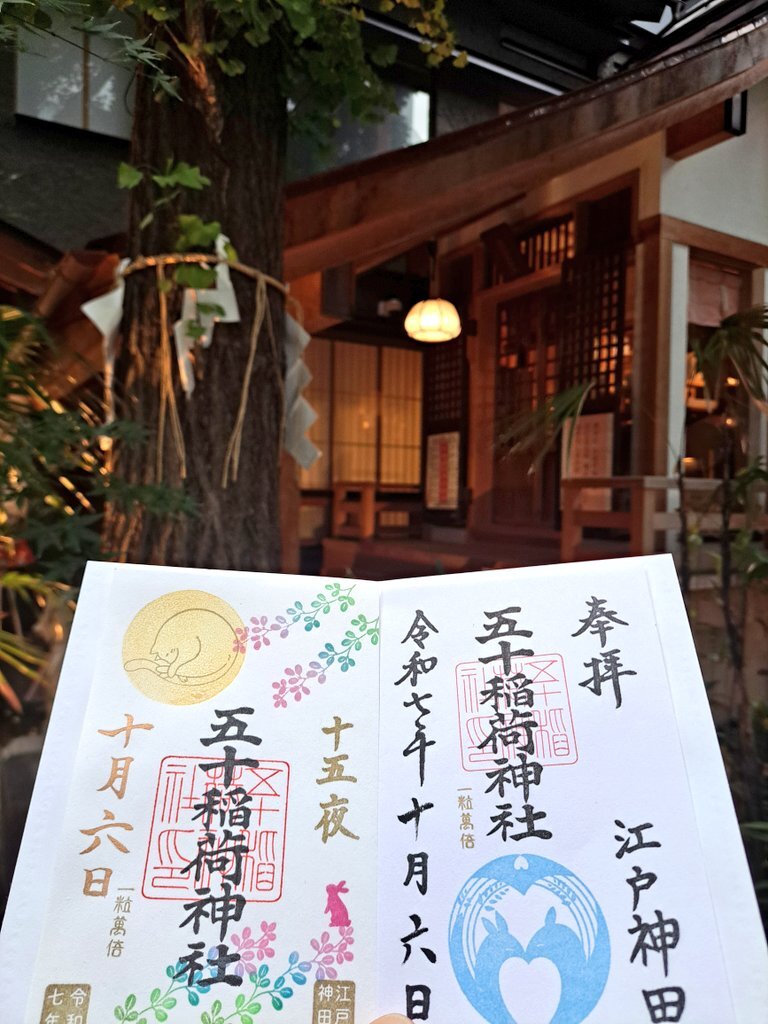 奉拝
五十稲荷神社
一粒萬倍
令和七年十月六日
江戸神田
十五夜
五十稲荷神社
十月六日
一粒萬倍
江戸
神田
令和
七年